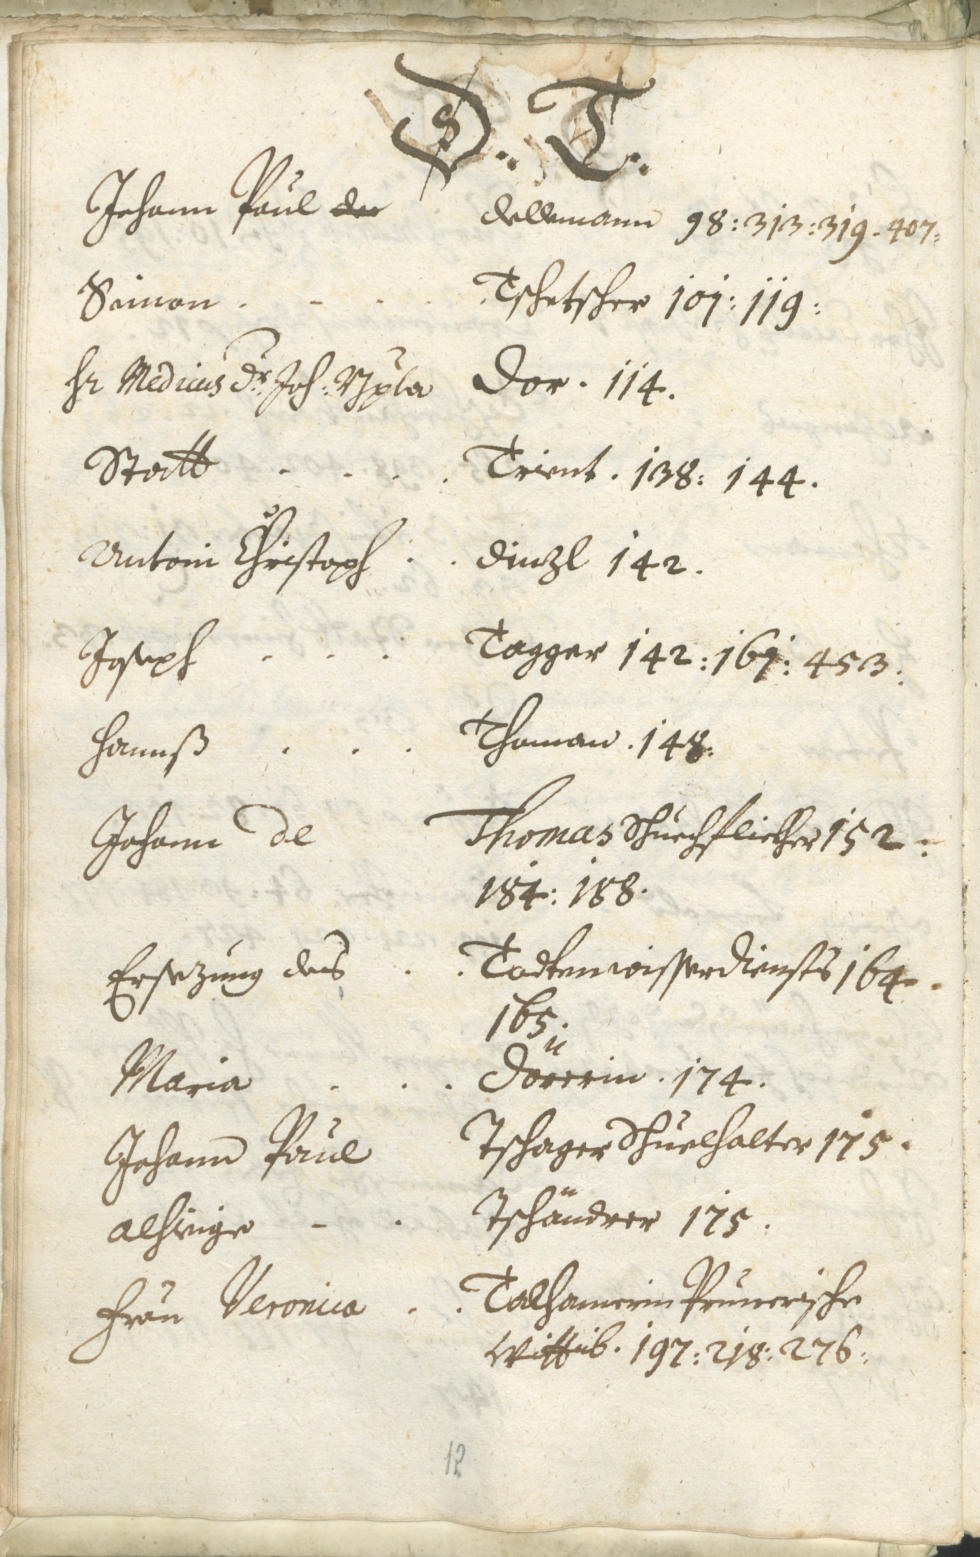 D. T.
Johann Paul der dellemann 98: 313: 319. 407:
Simon . - . . Tschetscher 101: 119:
hr Medicus Dr Joh: Dor. 114.
Statt - . . . Trient. 138: 144.
Antoni Christoph . . dinzl 142.
Joseph . . . Tagger 142: 161: 453:
hannß . . . Thoman. 148:
Johann de Thomas Schuechflickher 152:
184: 188.
Ersezung des . . Todtenweisserdiensts 164.
165:
Maria . . . Dörrerin. 174.
Johann Paul Tschager Schuelhalter 175.
alhiuige - . Tschändrer 175.
Frau Veronica . . Talhamerin Prunerische
Wittib. 197: 218: 276:
12